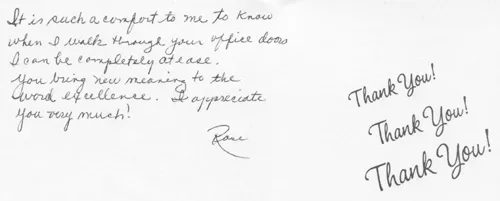 It is such a comfort to me to know
when I walk through your office doors
I can be completely at ease.
You bring new meaning to the
word excellence. I appreciate
you very much!
Thank You!
Thank You!
Thank You!